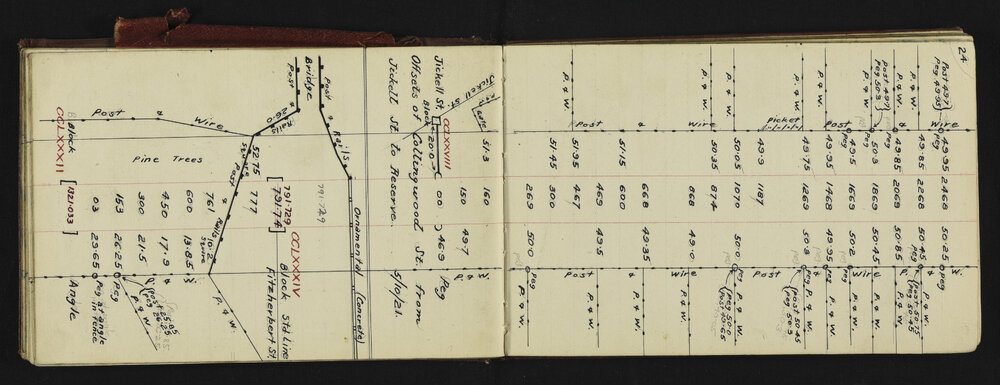 24
Post 49.7
Peg 49.95
49.95 2468 50.25 Peg
Wire
49.85 2268 50.45 P. & W.
Post 50.75
Peg 50.45
P. & W. &
49.85 2069 50.8 P. & W.
Post 49.7
Peg 50.3
50.3 1869 50.5
P. & W.
49.5 1669 50.2 P. & W.
Wire
Post
49.95 1468 49.95 Peg P. & W.
P. & W.
49.75 1269 50.8 Peg
Post 50.45
Peg 50.3
Picket
49.9 1187
Post
P. & W.
50.05 1070 50.0 P. & W.
Peg 50.0
Post 49.65
P. & W.
50.35 874
Wire
868 49.0 P. & W.
Wire
668 49.35
&
51.15 600
&
469 49.5
Post
P. & W. 51.35 467
Post
51.45 300
269 50.0 Peg
P. & W.
51.3 160
P. & W.
Jickell St.
150 49.7
CCLXXVIII
Jickell St. Block 20.0 00 46.9 Peg
Offsets of Collingwood St. from
Jickell St. to Reserve. 5/10/21.
Ornamental (Concrete)
Post & Rails
Bridge
791.729
Post
CCLXXXIV
Block Std Line
Fitzherbert St.
26.0
Rails
791.729
[791.74]
777
52.75
Post & Rails
761 10.2
Wire
P. & W.
600 13.85
Pine Trees
450 17.9
&
300 21.5
Post
153 26.25 Peg
P. & W.
03 23.65 Peg at angle in fence
Block
CCLXXXII [132.033] Angle